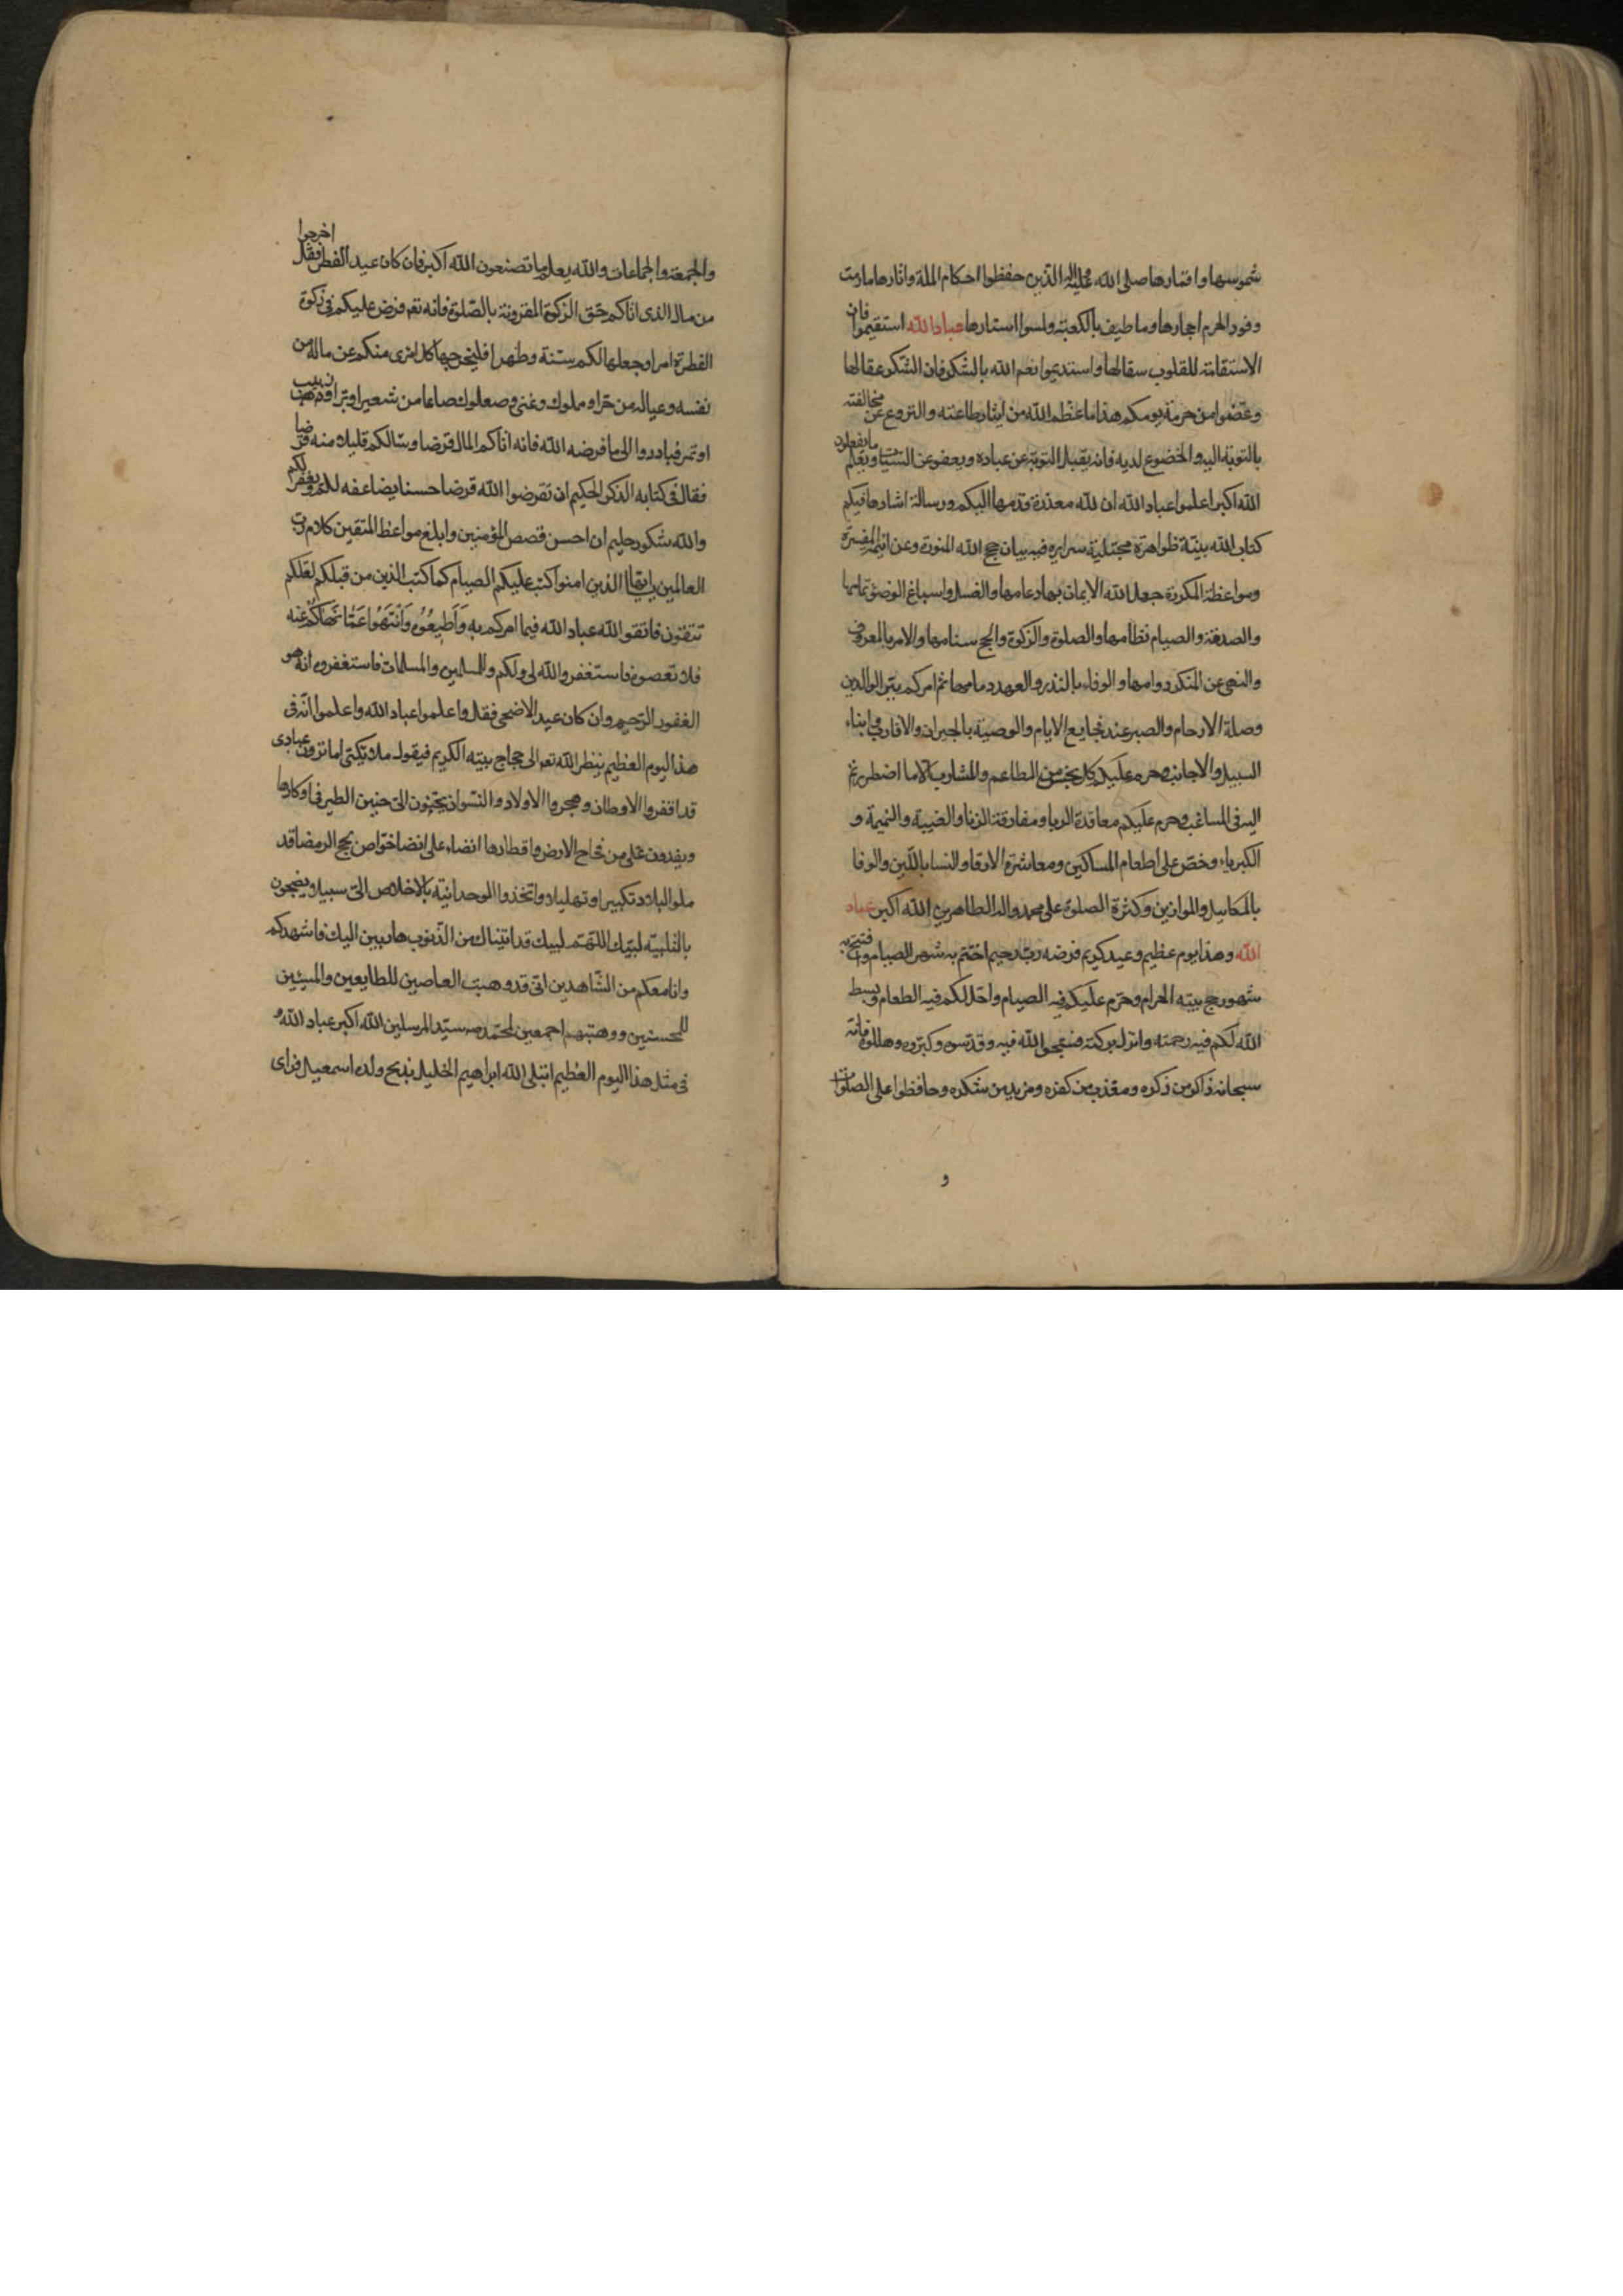 شموسها واقمارها صلى الله عليه وعلى اله الذين حفظوا احكام الملة واثارها ما رمت
وفود الحرم اجمارها وما طيف بالكعبة ولمسوا استارها عباد الله استقيموا فان
الاستقامة للقلوب سقالها واستديموا نعم الله بالشكر فان الشكر عقالها
وعظموا من حرمة يومكم هذا ما عظم الله من ايثار طاعته والنزوع عن مخالفته
بالتوبة اليه والخضوع لديه فانه يقبل التوبة عن عباده ويعفو عن السيئات ويعلم ما يفعلون
الله اكبر اعلموا عباد الله ان لله معذرة قدمها اليكم ورسالة اشارها فيكم
كتاب الله بينة ظواهره مجتلية سرايره فيه بيان حج الله المنورة وعزائمه المفسرة
ومواعظه المكررة جعل الله الايمان بها دعامها والغسل واسباغ الوضوء تمامها
والصدقة والصيام نظامها والصلوة والزكوة والحج سنامها والامر بالمعروف
والنهى عن المنكر دوامها والوفاء بالنذر والعهد دمامها ثم امركم ببر الوالدين
وصلة الارحام والصبر عند فجايع الايام والوصية بالجيران والاقارب وابناء
السبيل والاجانب وحرم عليكم كل نجس من المطاعم والمشارب الا ما اضطررتم
اليه فى المساغب وحرم عليكم معاقدة الربا ومفارقة الزنا والغيبة والنميمة و
الكبرياء وخص على اطعام المساكين ومعاشرة الارقا والنسا باللين والوفا
بالمكاييل والموازين وكثرة الصلوة على محمد واله الطاهرين الله اكبر عباد
الله وهذا يوم عظيم وعيد كريم فرضه رب رحيم اختتم به شهر الصيام وافتتح به
شهور حج بيته الحرام وحرم عليكم فيه الصيام واحل لكم فيه الطعام وبسط
الله لكم فيه رحمته وانزل بركته فسبحوا الله فيه وقدسوه وكبروه وهللوه فانه
سبحانه ذاكر من ذكره ومعذب من كفره ومزيد من شكره وحافظوا على الصلوات
و
والجمعة والجماعات والله يعلم ما تصنعون الله اكبر فان كان عيد الفطر فقل اخرجوا
من مال الذى اتاكم حق الزكوة المقرونة بالصلوة فانه تعم فرض عليكم فى زكوة
الفطرة امرا وجعلها لكم سنة وطهرا فليخرجها كل امرى منكم عن ماله من
نفسه وعياله من حر او مملوك وغنى وصعلوك صاعا من شعير او بر او زبيب
او تمر فبادروا الى ما فرضه الله فانه اتاكم المال قرضا وسالكم قليلا منه قرضا
فقال فى كتابه الذكر الحكيم ان تقرضوا الله قرضا حسنا يضاعفه لكم ويغفر لكم
والله شكور حليم ان احسن قصص المؤمنين وابلغ مواعظ المتقين كلام رب
العالمين يا ايها الذين امنوا كتب عليكم الصيام كما كتب الذين من قبلكم لعلكم
تتقون فاتقوا الله عباد الله فيما امركم به وَأَطِيعُوُه وَانْتَهُوا عَمّا نَهَاكُمْ عَنه
فلا تعصوه فاستغفروا الله لى ولكم وللمسلمين والمسلمات فاستغفروه انه هو
الغفور الرحيم وان كان عيد الاضحى فقل واعلموا عباد الله واعلموا انه فى
هذا اليوم العظيم ينظر الله تعم الى حجاج بيته الكريم فيقول ملايكتى اما ترون عبادى
قد اقفروا الاوطان وهجروا الاولاد والنسوان يحنون الى حنين الطير فى اوكارها
ويفدون على من فجاج الارض واقطارها انضاء على انضا خواص بحج الرمضا قد
ملو البلاد تكبيرا وتهليلا واتخذوا الوحدانية بالاخلاص الى سبيلا ويضجون
بالتلبية لبيك اللهم لبيك قد اتيناك من الذنوب هاربين اليك فاشهدكم
وانا معكم من الشاهدين انى قد وهبت العاصين للطايعين والمسيئين
للمحسنين ووهبتهم اجمعين لمحمد ص سيد المرسلين الله اكبر عباد الله و
فى مثل هذا اليوم العظيم ابتلى الله ابراهيم الخليل بذبح ولده اسمعيل فراى